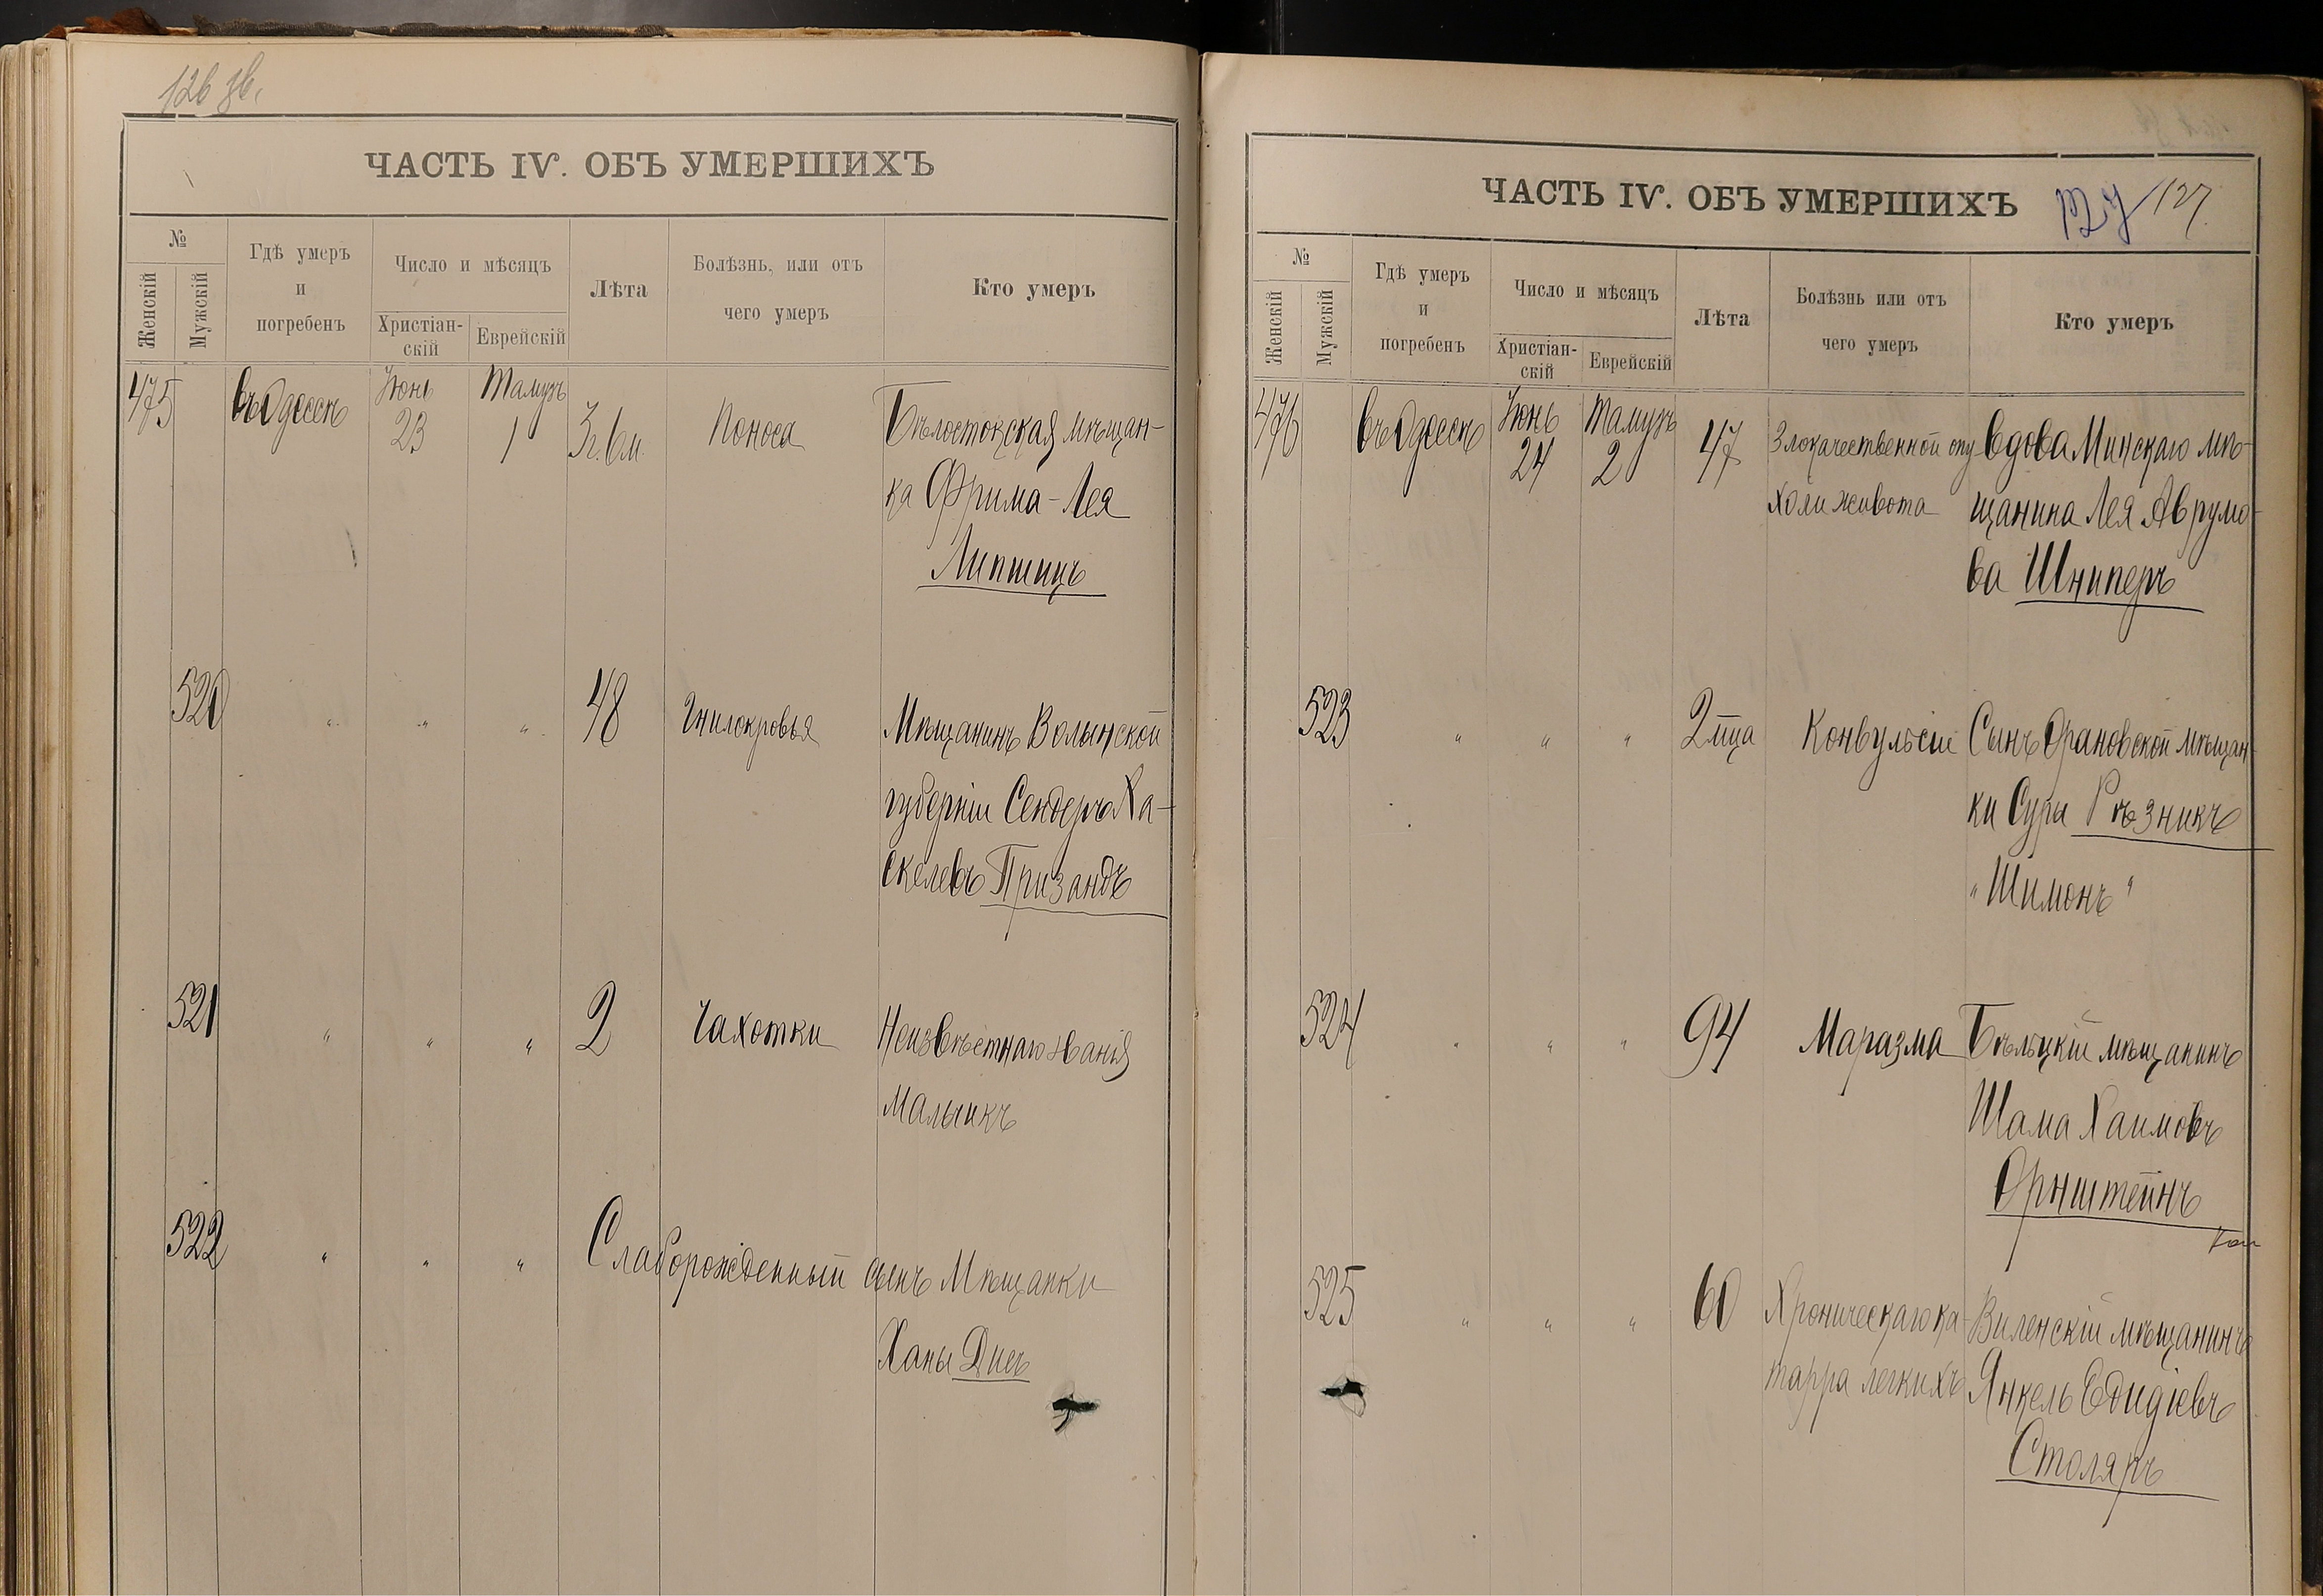 126 зв.
ЧАСТЬ IV. ОБЪ УМЕРШИХЪ
№
Женскій
Мужскій
Гдѣ умеръ
и
погребенъ
Число и мѣсяцъ
Христіан-
скій
Еврейскій
Лѣта
Болѣзнь, или отъ
чего умеръ
Кто умеръ
475 въ Одессѣ Іюнь 23 Тамузъ 1 3г. 6м. Поноса Бѣлостокская мѣщан-
ка Фрима-Лея
Липшицъ
520 " " " 48 Гнилокровья Мѣщанинъ Волынской
губерніи Сендеръ Ха-
скелевъ Призандъ
521 " " " 2 Чахотки Неизвѣстнаго званія
Мальчикъ
522 " " " Слаборожденный сынъ Мѣщанки
Ханы Дисъ
ЧАСТЬ IV. ОБЪ УМЕРШИХЪ
127
№
Женскій
Мужскій
Гдѣ умеръ
и
погребенъ
Число и мѣсяцъ
Христіан-
скій
Еврейскій
Лѣта
Болѣзнь или отъ
чего умеръ
Кто умеръ
476 въ Одессѣ Іюнь 24 Тамузъ 2 47 Злокачественной опу Вдова Минскаго мѣ-
холи живота щанина Лея Аврумо-
ва Шниперъ
523 " " " 2 м̃ца Конвульсіи Сынъ Орановской мѣщан-
ки Суры Рѣзникъ
"Шимонъ"
524 " " " 94 Маразма Бѣльцкій мѣщанинъ
Шама Хаимовъ
Орнштейнъ
525 " " " 60 Хроническаго ка- Виленскій мѣщанинъ
тарра легкихъ Янкель Едидіевъ
Столяръ